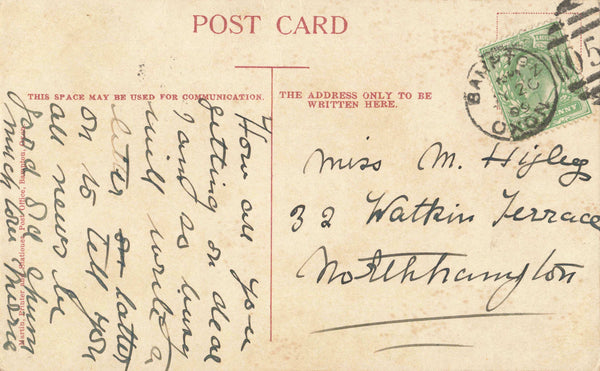 POST CARD
THIS SPACE MAY BE USED FOR COMMUNICATION.
THE ADDRESS ONLY TO BE
WRITTEN HERE.
BAMPTON
OXON
Miss M.
32 Watkin Terrace
Northhampton
How are you
getting on dear
I am so busy
will write a
letter or latter
on to tell you
all news be
good old chum
much love
Martin, Printer and Stationer, Post Office, Bampton, Oxon.